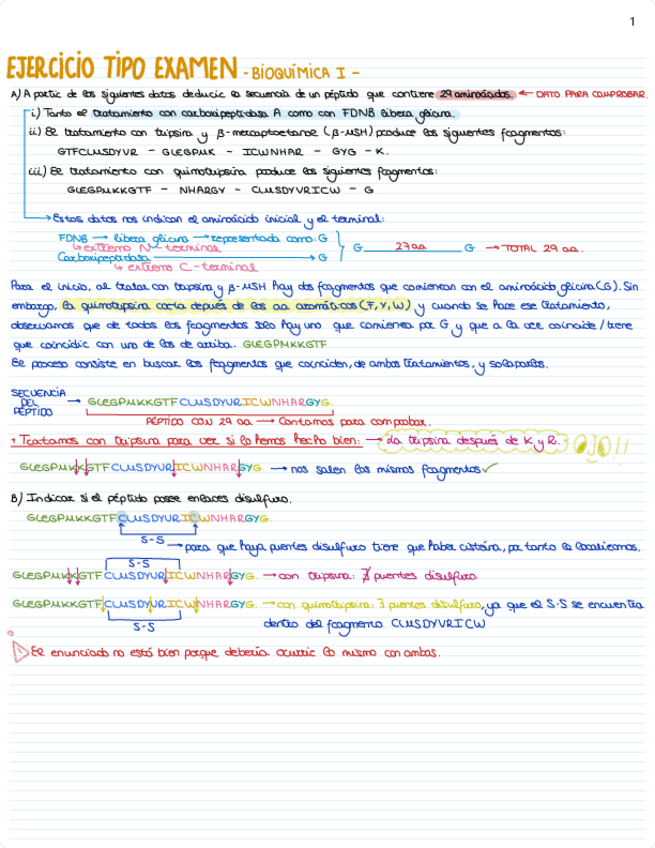 1
EJERCICIO TIPO EXAMEN - BIOQUÍMICA I -
A) A partir de los siguientes datos deducir la secuencia de un péptido que contiene 29 aminoácidos. ← DATO PARA COMPROBAR.
i) Tanto el tratamiento con carboxipeptidasa A como con FDNB libera glicina.
ii) El tratamiento con tripsina y β-mercaptoetanol (β-MSH) produce los siguientes fragmentos:
GTFCLMSDYVR - GLEGPMK - ICWNHAR - GYG - K.
iii) El tratamiento con quimotripsina produce los siguientes fragmentos:
GLEGPMKKGTF - NHARGY - CLMSDYVRICW - G
→ Estos datos nos indican el aminoácido inicial y el terminal:
FDNB → libera glicina → representada como: G
↳ extremo N-terminal
G 27aa G → TOTAL 29 aa.
Carboxipeptidasa → G
↳ extremo C-terminal
Para el inicio, al tratar con tripsina y β-MSH hay dos fragmentos que comienzan con el aminoácido glicina (G). Sin
embargo, la quimotripsina corta depués de los aa aromáticos (F, Y, W) y cuando se hace ese tratamiento,
observamos que de todos los fragmentos solo hay uno que comienza por G y que a la vez coincide/tiene
que coincidir con uno de los de arriba. GLEGPMKKGTF
El proceso consiste en buscar los fragmentos que coinciden, de ambos tratamientos, y solaparlos.
SECUENCIA
DEL
PÉPTIDO
→ GLEGPMKKGTFCLMSDYVRICWNHARGYG.
PÉPTIDO CON 29 aa → Contamos para comprobar.
Tratamos con tripsina para ver si lo hemos hecho bien: → La tripsina después de K y R. OJO!!
GLEGPMKKGTFCLMSDYVRICWNHARGYG. → nos salen los mismos fragmentos ✓
B) Indicar si el péptido posee enlaces disulfuro.
GLEGPMKKGTFCLMSDYVRICWNHARGYG
S-S
→ para que haya puentes disulfuro tiene que haber cisteína, por tanto la localizamos.
S-S
GLEGPMKKGTFCLMSDYVRICWNHARGYG. → con tripsina: ∄ puentes disulfuro
GLEGPMKKGTFCLMSDYVRICWNHARGYG. → con quimotripsina: ∃ puentes disulfuro, ya que el S-S se encuentra
S-S
dentro del fragmento CLMSDYVRICW
El enunciado no está bien porque debería ocurrir lo mismo con ambas.